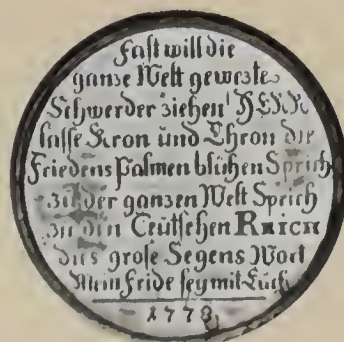 Fast will die
ganze Welt gewezte
Schwerder ziehen HERR
lasse Kron und Thron die
Friedens Palmen blühen Sprich
zu der ganzen Welt Sprich
zu den Teutschen REICH
das grose Segens Wort
Mein Fride sey mit Euch
1778